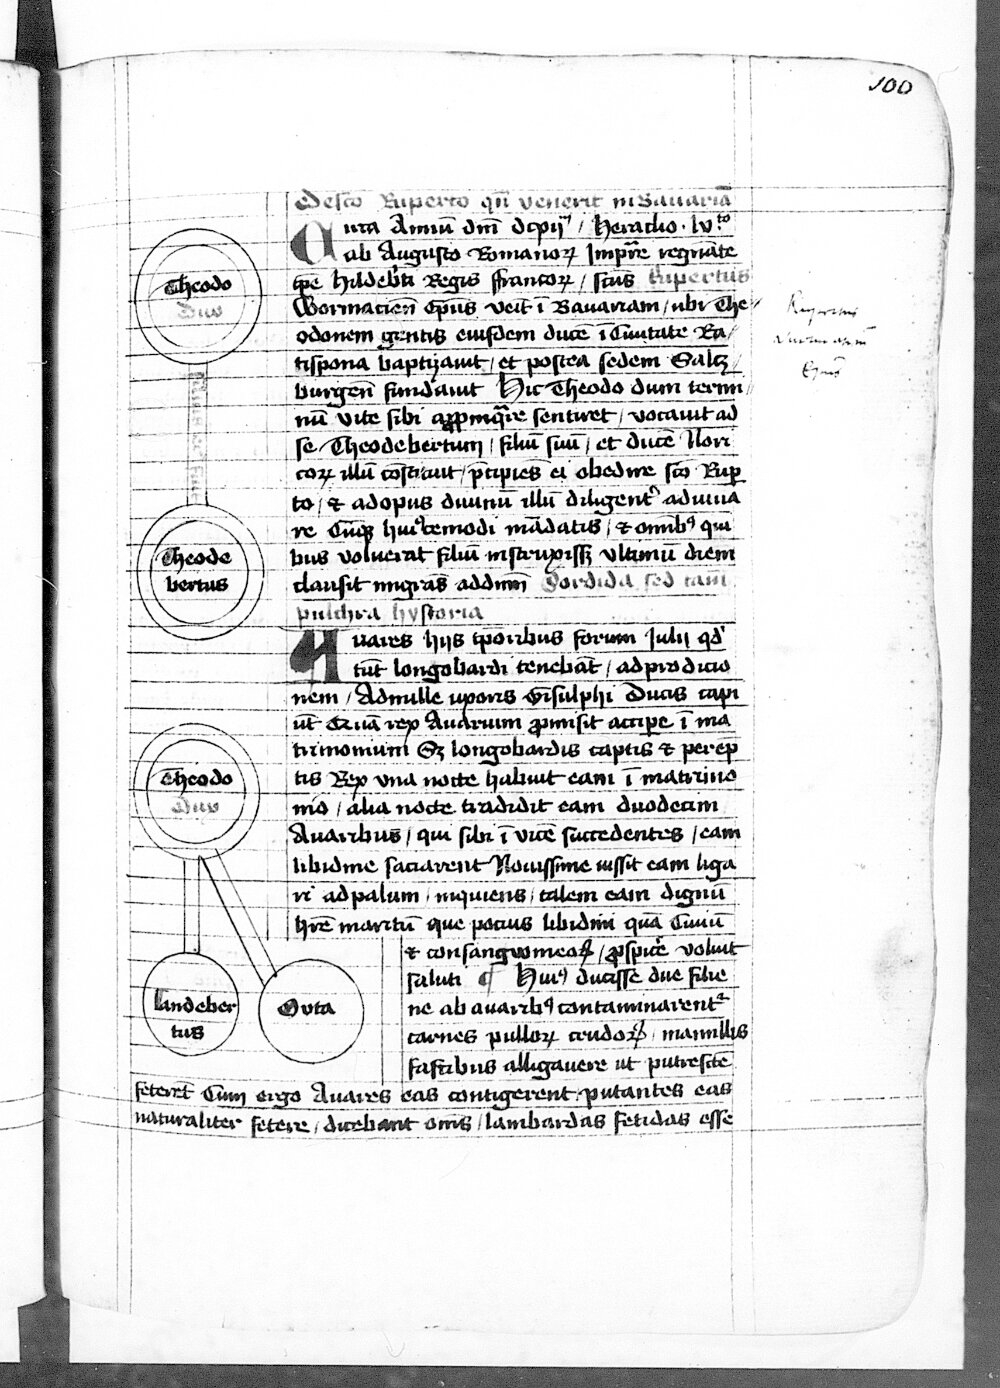 100
De sco Ruperto qn̄ venerit in Bavariā
Circa Annū dnī dcxiij / Heraclio · lv to
ab Augusto Romanoꝝ Impr̄re regnāte
tpe hildebti Regis francoꝝ / scūs Rupertus
Wormacien̄ ep̄us veīt ī Bavariam / ubi The
odonem gentis eiusdem ducē ī Civitate Ra
tispona baptizavit / et postea sedem Saltz
burgen̄ fundavit Hic Theodo dum termi
nū vite sibi appropinq̄re sentiret / vocavit ad
se Theodebertum / filiū suū / et ducē Nori
coꝝ illū cōstituit / p̄cipiēs ei obedire sco Rup
to / & ad opus divinū illū diligent adiuva
re Cūqꝫ huiuscemodi mādatis / & omībꝰ qui
bus voluerat filiū instruxissꝫ ultimū diem
clausit migrās ad dnm̄ Sordida sed tam̄
pulchra hystoria
Avares hijs tp̄oribus forum Julij qd
tūc longobardi tenebāt / ad prodicio
nem / Romille uxoris Gisulphi Ducis capi
ūt Quā rex Avarum promisit accipe ī ma
trimonium Sꝫ longobardis captis & peremp
tis Rex una nocte habuit eam ī matrimo
nio / alia nocte tradidit eam duodecim
Avaribus / qui sibi ī vicē succedentes / eam
libidine saciarent Novissime iussit eam liga
ri ad palum / inquiens / talem eam dignū
hr̄e maritū que pocius libidini quā Civiū
& consangwineoꝝ / prospicē voluit
saluti ¶ Huiꝰ ducisse due filie
ne ab avaribꝰ contaminarent
carnes pulloꝝ crudoꝝ / mamillis
fascibus alligavere ut putrescē
feteret Cum ergo Avares eas contigerent / putantes eas
naturaliter fetere / dicebant om̄s / lambardas fetidas esse
Theodo
dux
Theode
bertus
Theodo
dux
Landeber
tus
Outa
Rupertus
Ep̄us